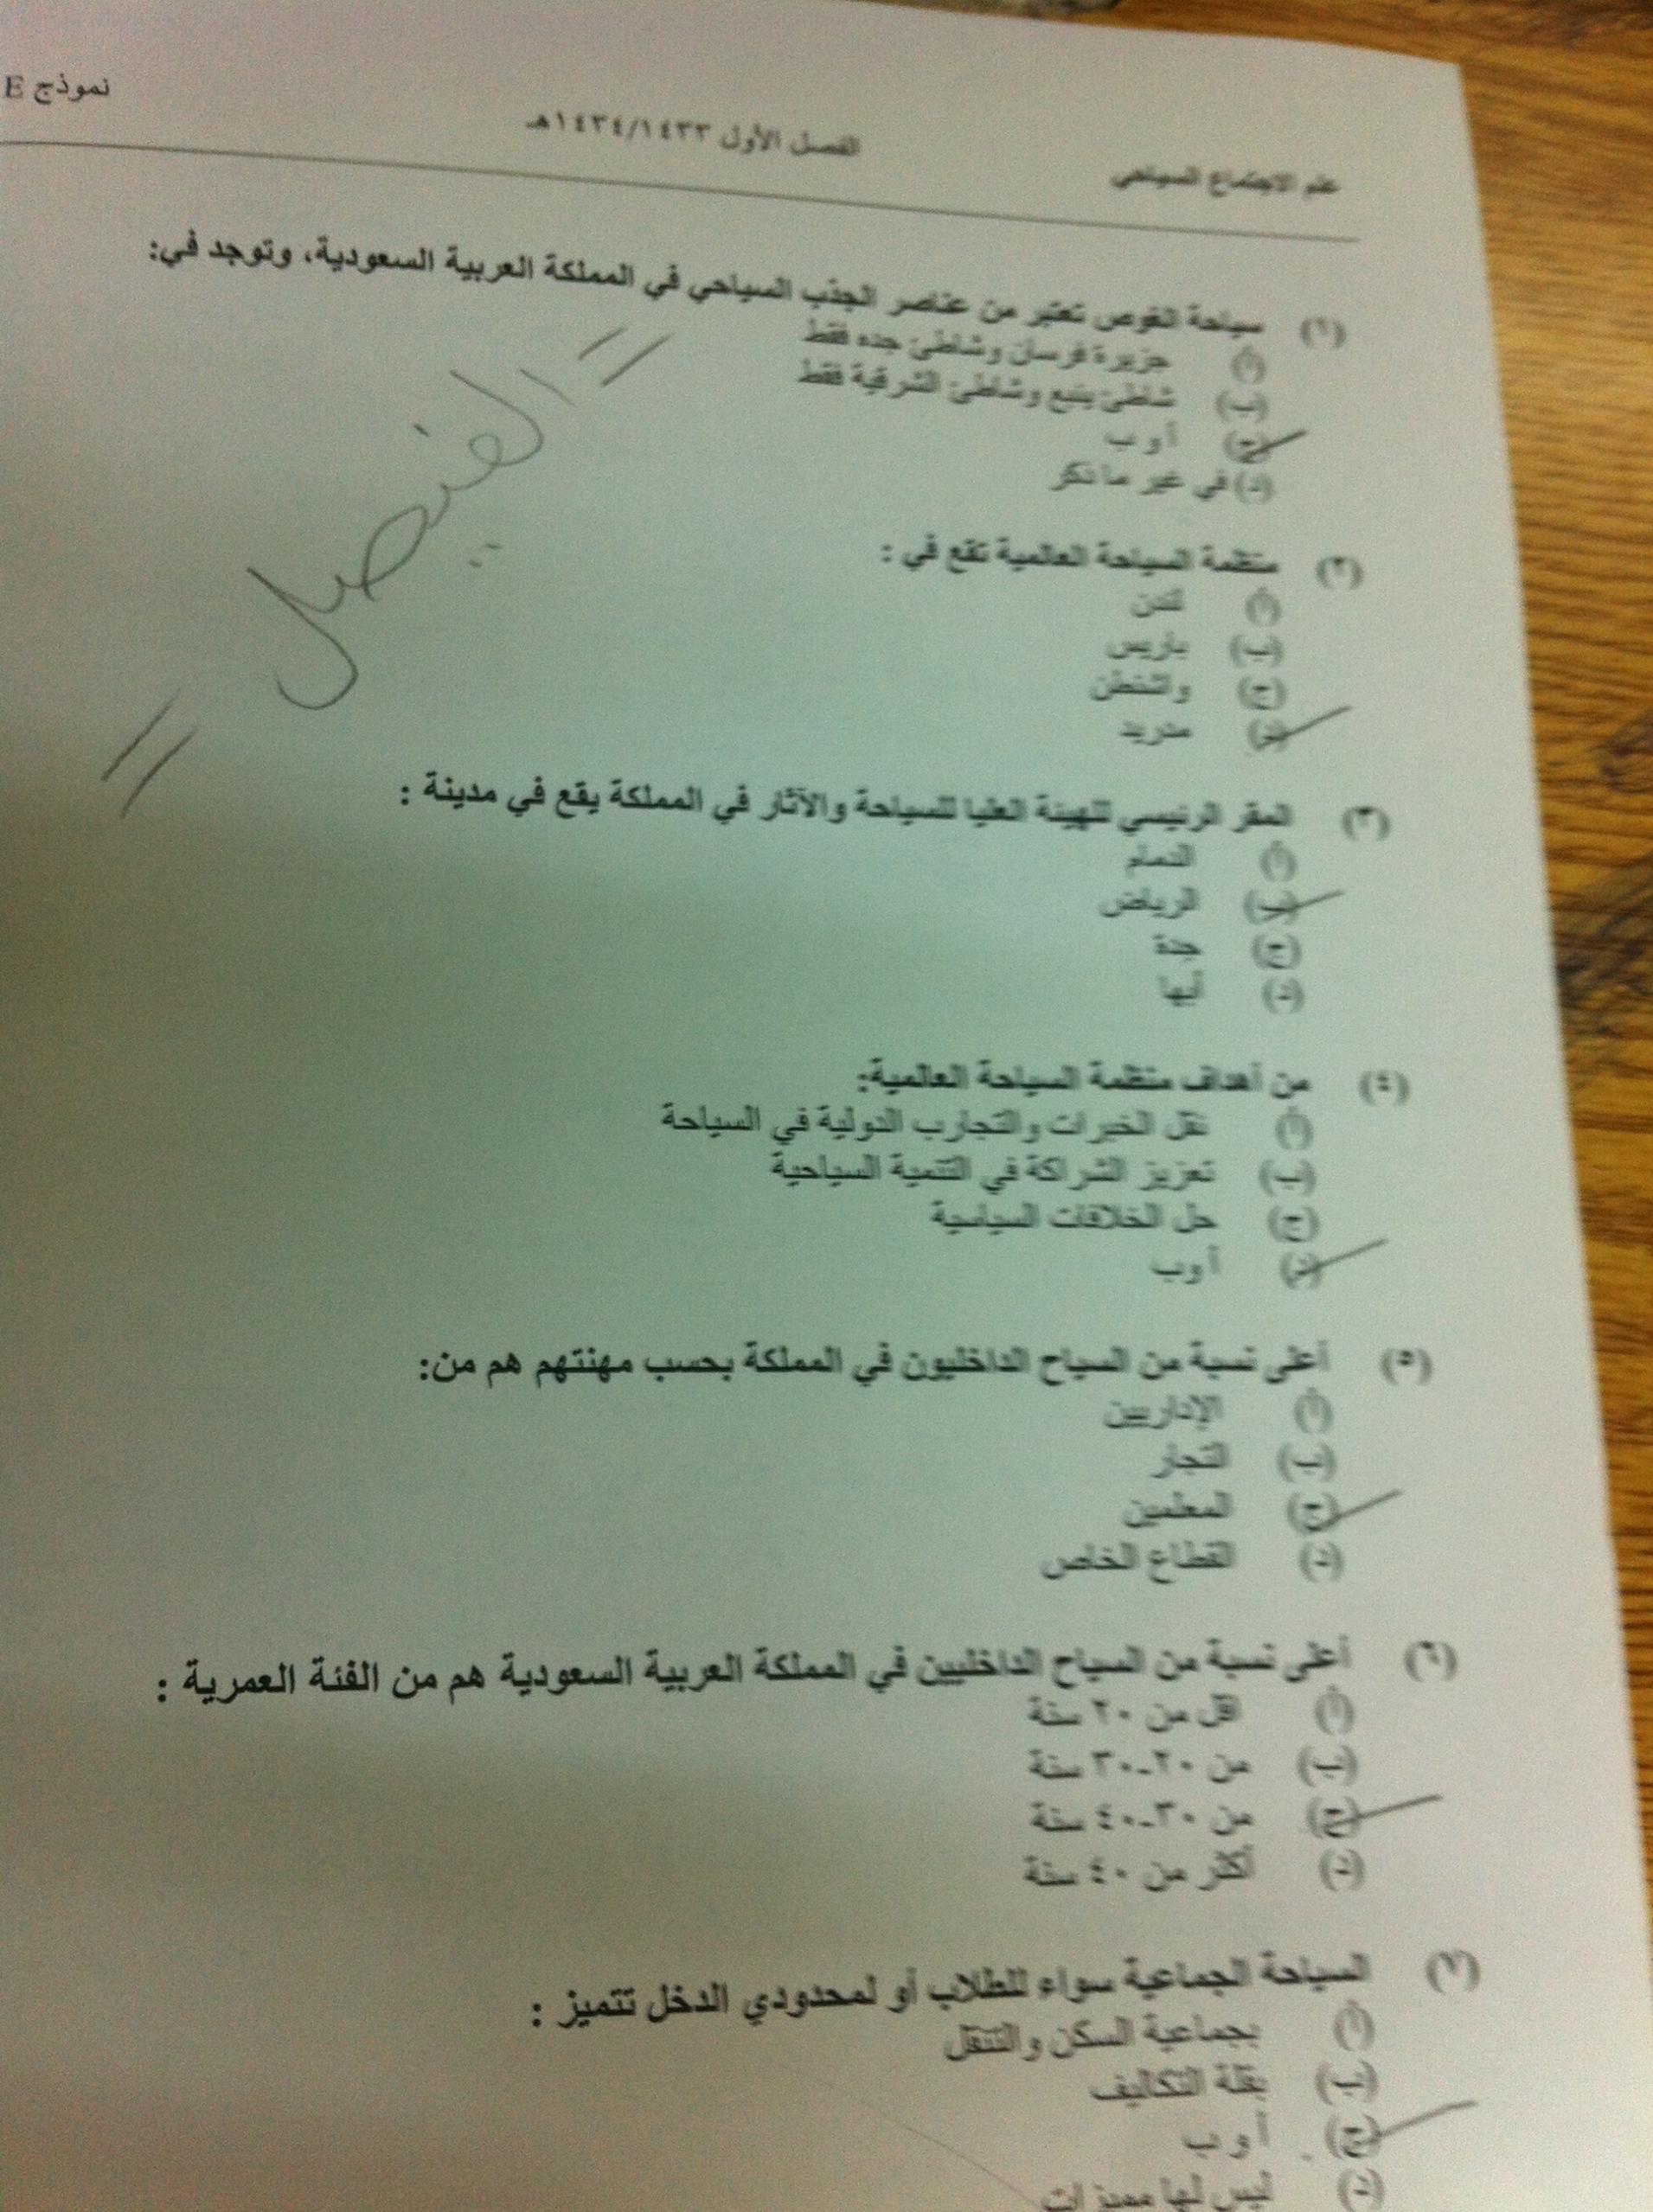 علم الاجتماع السياحي
الفصل الأول ١٤٣٤/١٤٣٣هـ
نموذج E
(١) سياحة الغوص تعتبر من عناصر الجذب السياحي في المملكة العربية السعودية، وتوجد في:
(أ) جزيرة فرسان وشاطئ جده فقط
(ب) شاطئ ينبع وشاطئ الشرقية فقط
(ج) أ و ب
(د) في غير ما ذكر
= الفيصل =
(٢) منظمة السياحة العالمية تقع في :
(أ) لندن
(ب) باريس
(ج) واشنطن
(د) مدريد
(٣) المقر الرئيسي للهيئة العليا للسياحة والآثار في المملكة يقع في مدينة :
(أ) الدمام
(ب) الرياض
(ج) جدة
(د) أبها
(٤) من أهداف منظمة السياحة العالمية:
(أ) نقل الخبرات والتجارب الدولية في السياحة
(ب) تعزيز الشراكة في التنمية السياحية
(ج) حل الخلافات السياسية
(د) أ و ب
(٥) أعلى نسبة من السياح الداخليون في المملكة بحسب مهنتهم هم من:
(أ) الإداريين
(ب) التجار
(ج) المعلمين
(د) القطاع الخاص
(٦) أعلى نسبة من السياح الداخليين في المملكة العربية السعودية هم من الفئة العمرية :
(أ) اقل من ٢٠ سنة
(ب) من ٢٠-٣٠ سنة
(ج) من ٣٠-٤٠ سنة
(د) أكثر من ٤٠ سنة
(٧) السياحة الجماعية سواء للطلاب أو لمحدودي الدخل تتميز :
(أ) بجماعية السكن والتنقل
(ب) بقلة التكاليف
(ج) أ و ب
(د) ليس لها مميزات